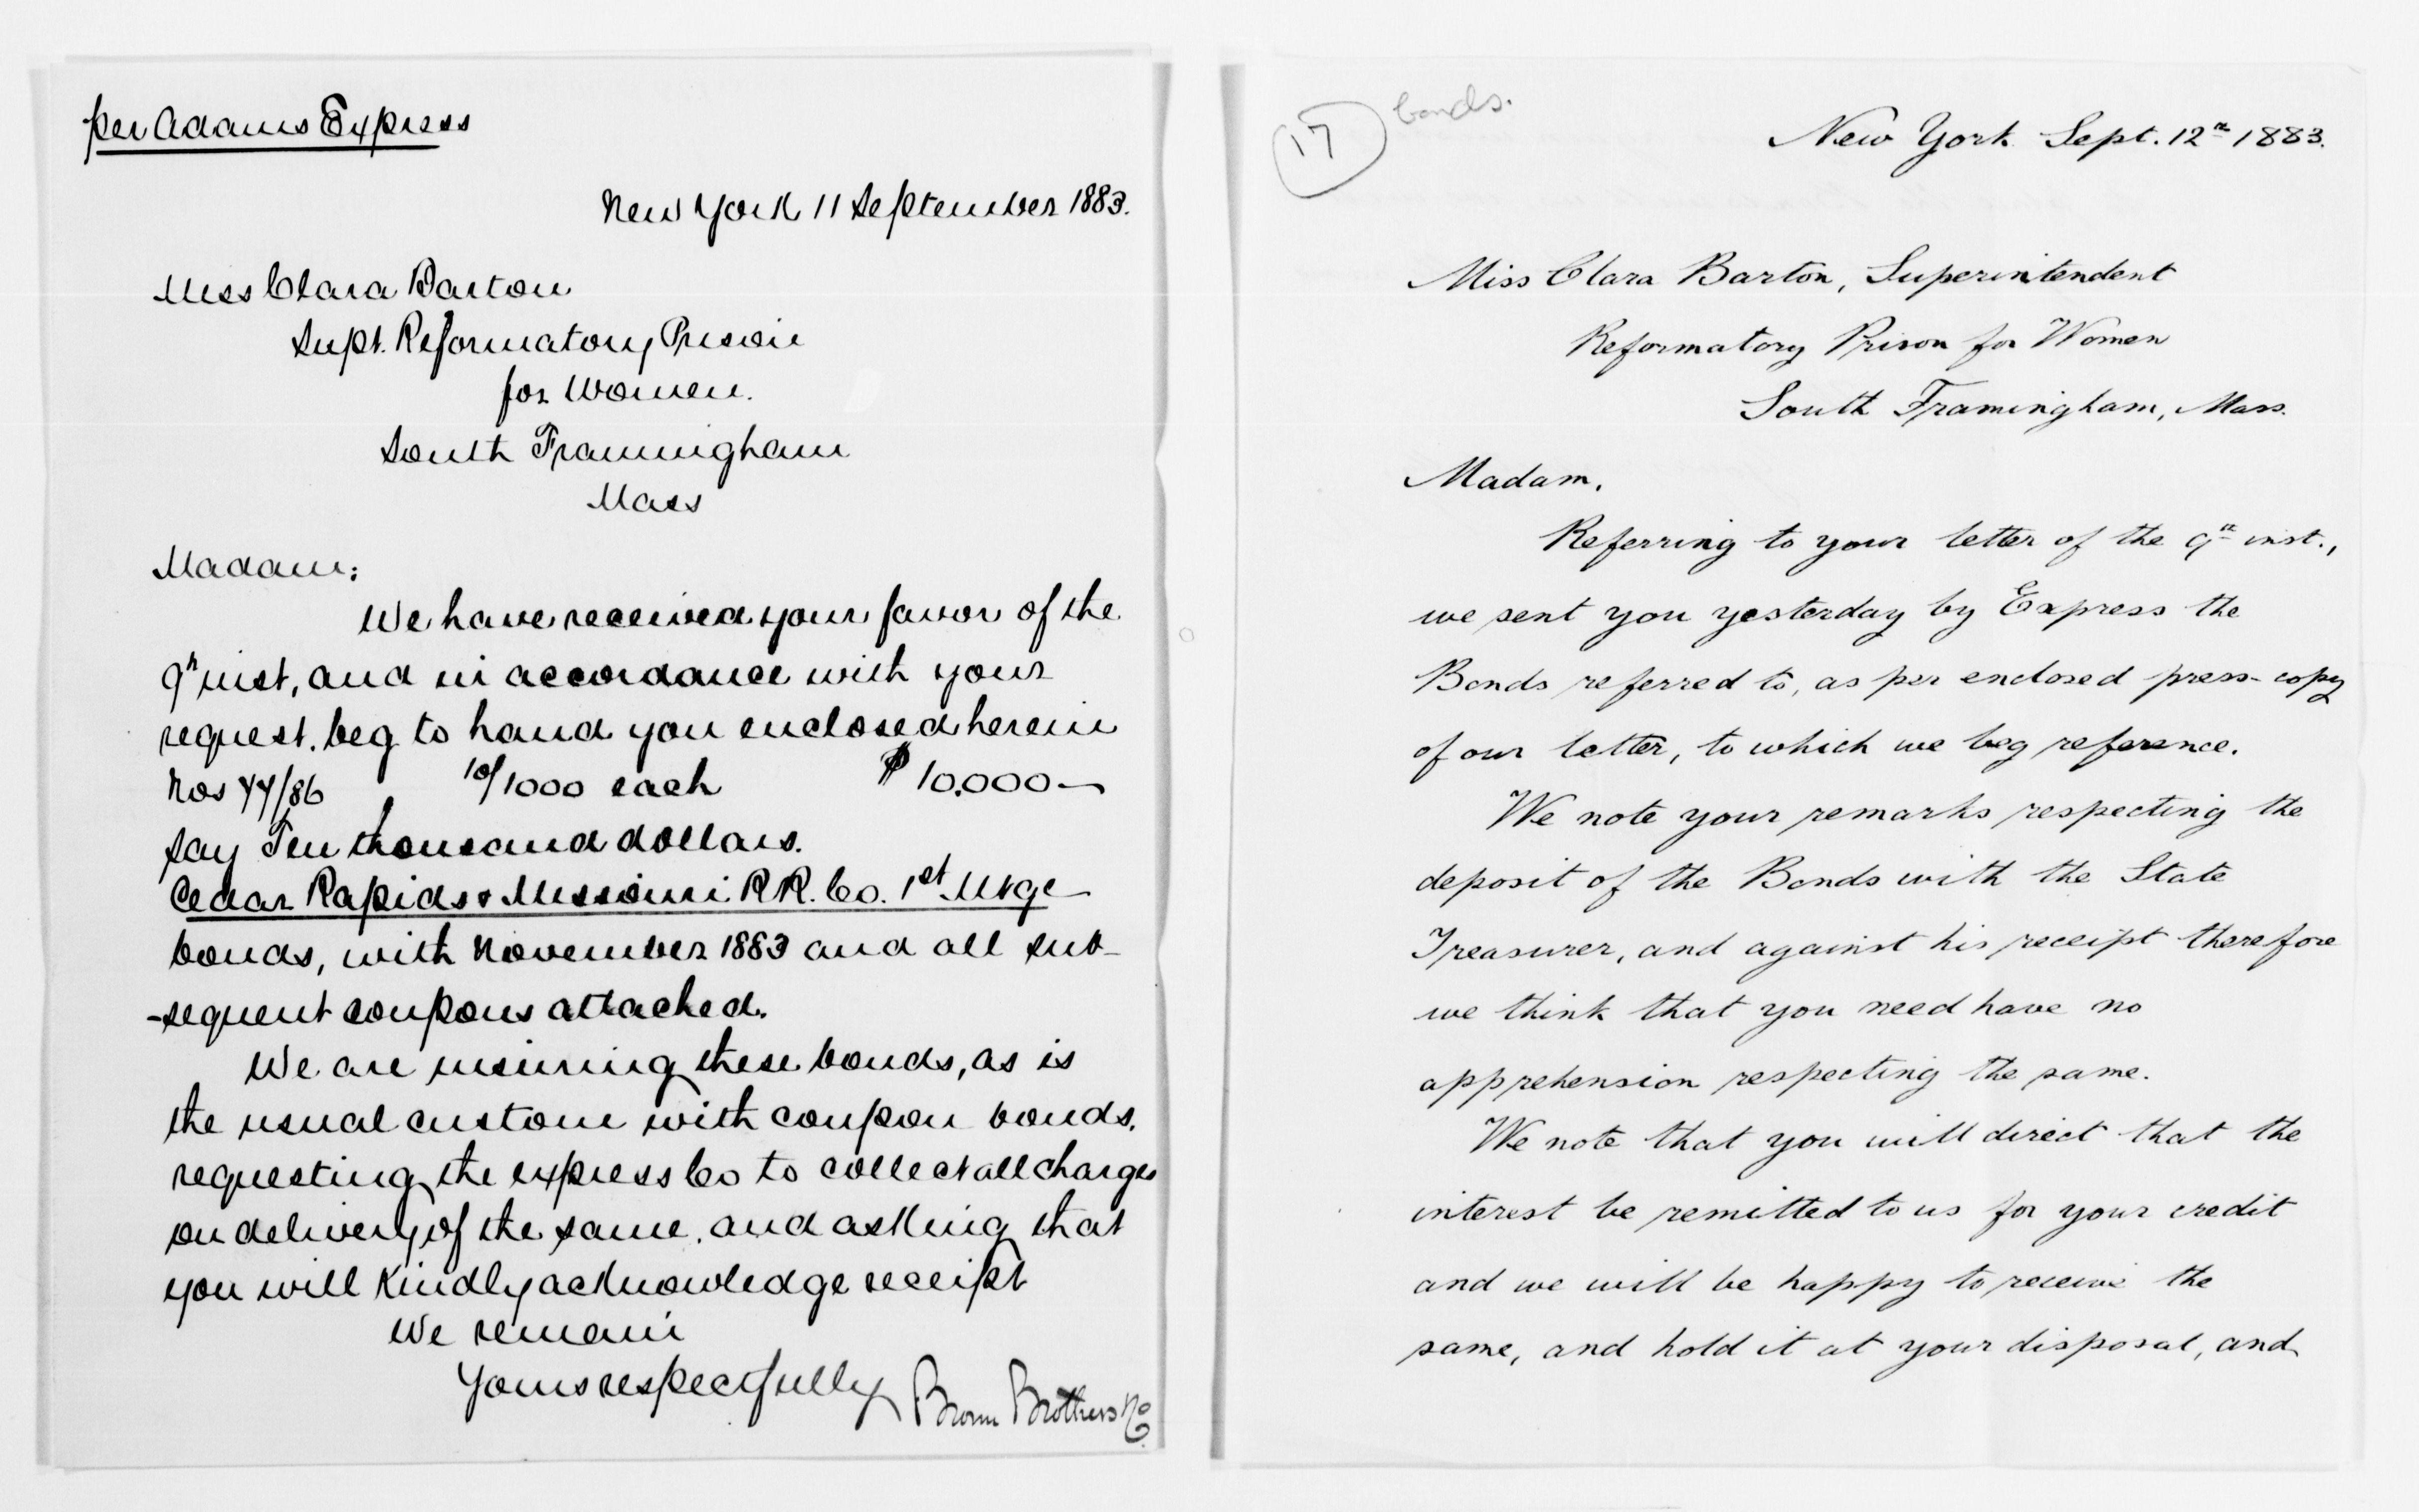 per Adams Express
New York 11 September 1883.
Miss Clara Barton
Supt. Reformatory Prison
for Women.
South Framingham
Mass
Madam:
We have received your favor of the
9th inst, and in accordance with your
request, beg to hand you enclosed herein
Nos 77/86 10/1000 each $10,000—
say Ten thousand dollars.
Cedar Rapids & Missouri R.R. Co. 1st Mtge
bonds, with November 1883 and all sub-
-sequent coupons attached.
We are insuring these bonds, as is
the usual custom with coupon bonds,
requesting the express Co to collect all charges
on delivery of the same, and asking that
you will kindly acknowledge receipt
We remain
Yours respectfully
Brown Brothers & Co.
17 bonds.
New York Sept. 12th 1883.
Miss Clara Barton, Superintendent
Reformatory Prison for Women
South Framingham, Mass.
Madam,
Referring to your letter of the 9th inst.,
we sent you yesterday by Express the
Bonds referred to, as per enclosed press-copy
of our letter, to which we beg reference.
We note your remarks respecting the
deposit of the Bonds with the State
Treasurer, and against his receipt therefore
we think that you need have no
apprehension respecting the same.
We note that you will direct that the
interest be remitted to us for your credit
and we will be happy to receive the
same, and hold it at your disposal, and